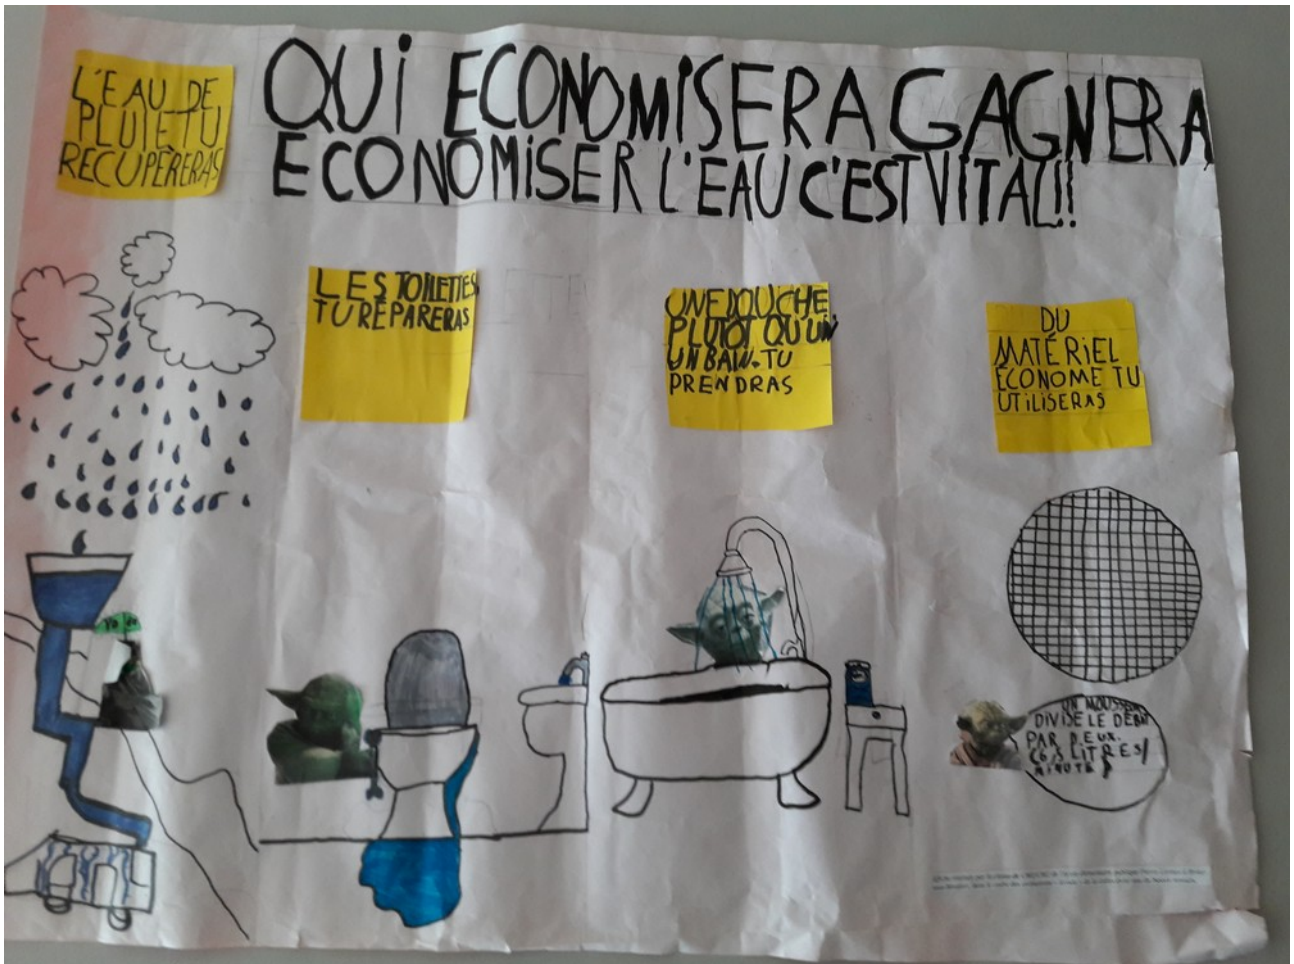 L'EAU DE
PLUIE TU
RECUPÈRERAS
QUi ECONOMISERA GAGNERA
ECONOMiSER L'EAU C'EST VITAL!!
LES TOILETTES
TU RÉPARERAS
UNE DOUCHE
PLUTOT QU'UN
UN BAIN. TU
PRENDRAS
DU
MATÉRiEL
ÉCONOME TU
UTiLiSERAS
UN MOUSSEUR
DIVISE LE DÉBIT
PAR DEUX.
LITRES/
MINUTE